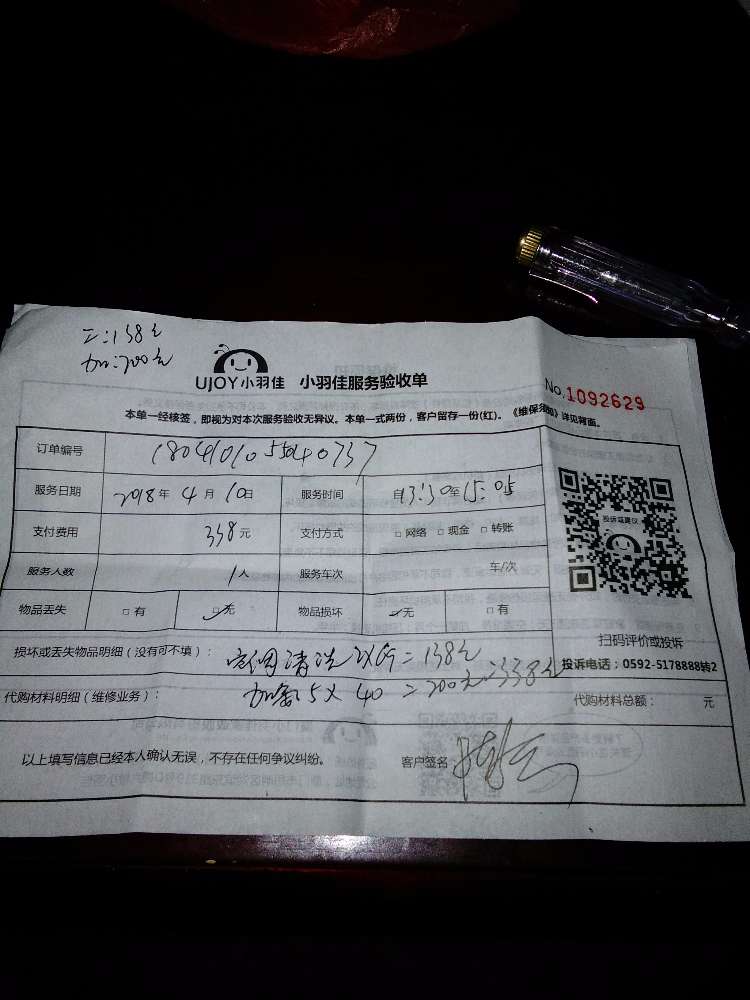 二:138元
加:200元
UJOY小羽佳 小羽佳服务验收单
No.1092629
本单一经核签,即视为对本次服务验收无异议。本单一式两份,客户留存一份(红)。《维保须知》详见背面。
订单编号
服务日期 2018年 4月 10日 服务时间 自13:30至15:05
支付费用 338元 支付方式 □网络 □现金 □转账
服务人数 1人 服务车次 车/次
物品丢失 □有 □无 物品损坏 □无 □有
投诉或建议
扫码评价或投诉
投诉电话:0592-5178888转2
损坏或丢失物品明细(没有可不填): 空调清洗 = 138元
代购材料明细(维修业务): 加氟5×40=200元 338元
代购材料总额: 元
以上填写信息已经本人确认无误,不存在任何争议纠纷。
客户签名: